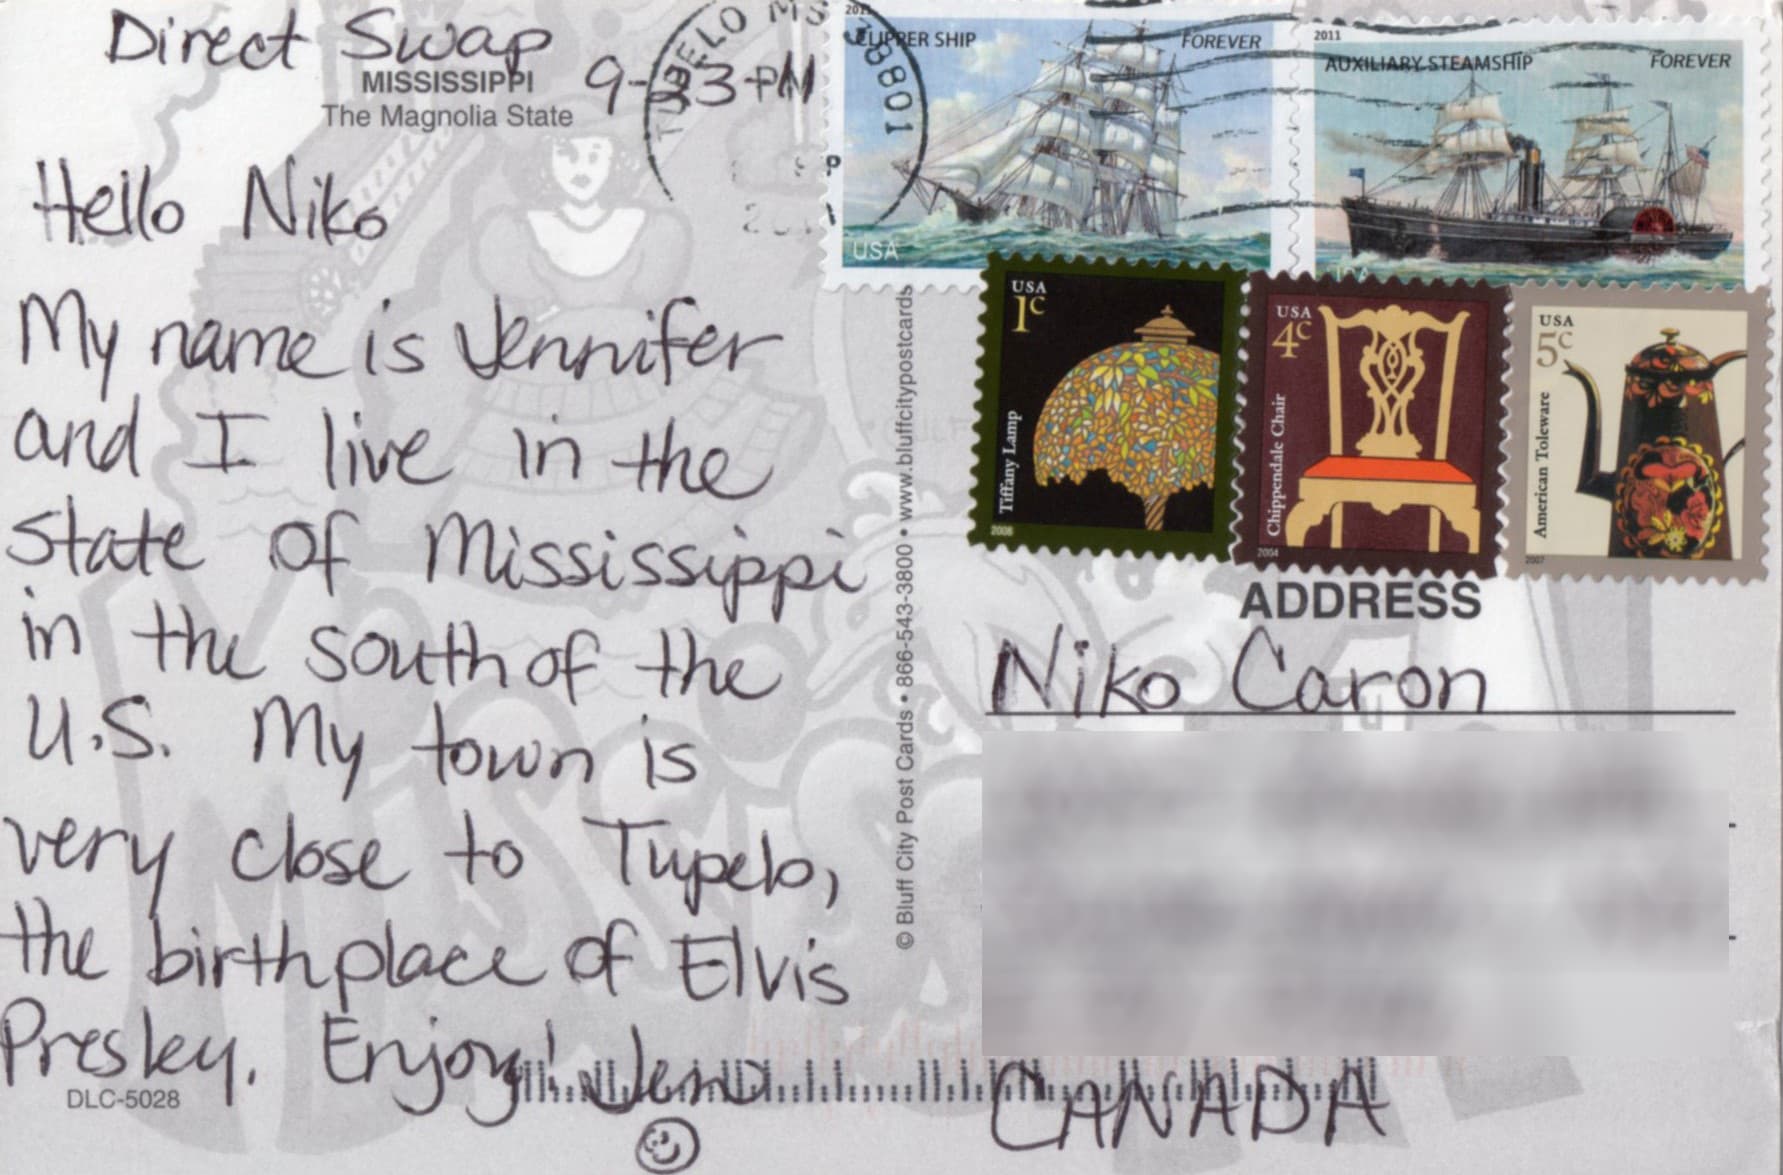 Direct Swap
MISSISSIPPI
The Magnolia State
9-23-
TUPELO MS 38801
PM
Hello Niko
My name is Jennifer
and I live in the
state of Mississippi
in the south of the
U.S. My town is
very close to Tupelo,
the birthplace of Elvis
Presley. Enjoy! Jen
DLC-5028
© Bluff City Post Cards • 866-543-3800 • www.bluffcitypostcards
2011
CLIPPER SHIP
FOREVER
USA
2011
AUXILIARY STEAMSHIP
FOREVER
USA
1c
Tiffany Lamp
2008
USA
4c
Chippendale Chair
2004
USA
5c
American Toleware
2007
ADDRESS
Niko Caron
CANADA